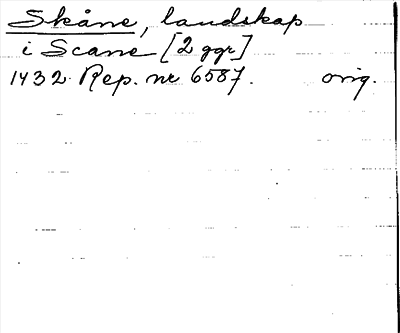 Skåne, landskap
i Scane [2 ggr]
1432 Rep. nr 6587. orig.